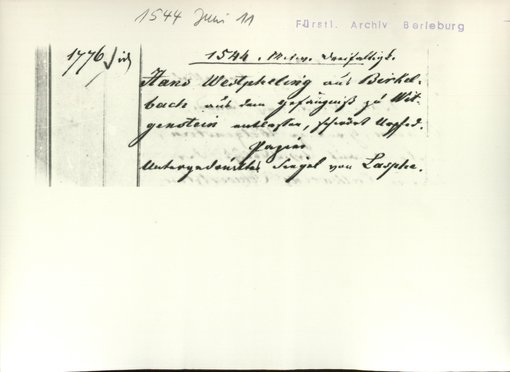 1544 Juni 11
Fürstl. Archiv Berleburg
1776
1544. M. n. Dreifaltigk.
Hans Westpheling aus Birkel-
bach aus dem gefängniß zu Wit-
genstein entlassen, schwört Urphed.
Papier
Untergedrücktes Siegel von Laasphe.